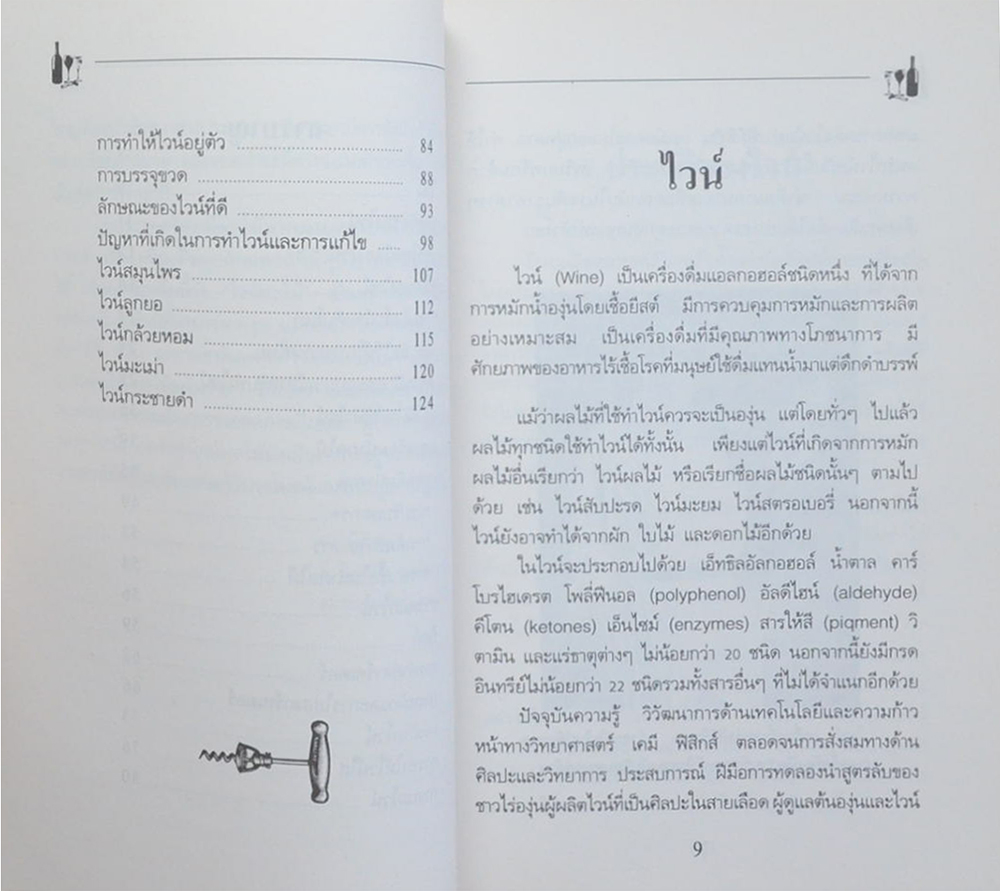 การทำให้ไวน์อยู่ตัว ........ 84
การบรรจุขวด ........ 88
ลักษณะของไวน์ที่ดี ........ 93
ปัญหาที่เกิดในการทำไวน์และการแก้ไข ...... 98
ไวน์สมุนไพร ........ 107
ไวน์ลูกยอ ........ 112
ไวน์กล้วยหอม ........ 115
ไวน์มะเม่า ........ 120
ไวน์กระชายดำ ........ 124
ไวน์
ไวน์ (Wine) เป็นเครื่องดื่มแอลกอฮอล์ชนิดหนึ่ง ที่ได้จาก
การหมักน้ำองุ่นโดยเชื้อยีสต์ มีการควบคุมการหมักและการผลิต
อย่างเหมาะสม เป็นเครื่องดื่มที่มีคุณภาพทางโภชนาการ มี
ศักยภาพของอาหารไร้เชื้อโรคที่มนุษย์ใช้ดื่มแทนน้ำมาแต่ดึกดำบรรพ์
แม้ว่าผลไม้ที่ใช้ทำไวน์ควรจะเป็นองุ่น แต่โดยทั่วๆ ไปแล้ว
ผลไม้ทุกชนิดใช้ทำไวน์ได้ทั้งนั้น เพียงแต่ไวน์ที่เกิดจากการหมัก
ผลไม้อื่นเรียกว่า ไวน์ผลไม้ หรือเรียกชื่อผลไม้ชนิดนั้นๆ ตามไป
ด้วย เช่น ไวน์สับปะรด ไวน์มะยม ไวน์สตรอเบอรี่ นอกจากนี้
ไวน์ยังอาจทำได้จากผัก ใบไม้ และดอกไม้อีกด้วย
ในไวน์จะประกอบไปด้วย เอ็ทธิลอัลกอฮอล์ น้ำตาล คาร์
โบรไฮเดรต โพลี่ฟีนอล (polyphenol) อัลดีไฮน์ (aldehyde)
คีโตน (ketones) เอ็นไซม์ (enzymes) สารให้สี (piqment) วิ
ตามิน และแร่ธาตุต่างๆ ไม่น้อยกว่า 20 ชนิด นอกจากนี้ยังมีกรด
อินทรีย์ไม่น้อยกว่า 22 ชนิดรวมทั้งสารอื่นๆ ที่ไม่ได้จำแนกอีกด้วย
ปัจจุบันความรู้ วิวัฒนาการด้านเทคโนโลยีและความก้าว
หน้าทางวิทยาศาสตร์ เคมี ฟิสิกส์ ตลอดจนการสั่งสมทางด้าน
ศิลปะและวิทยาการ ประสบการณ์ ฝีมือการทดลองนำสูตรลับของ
ชาวไร่องุ่นผู้ผลิตไวน์ที่เป็นศิลปะในสายเลือด ผู้ดูแลต้นองุ่นและไวน์
9